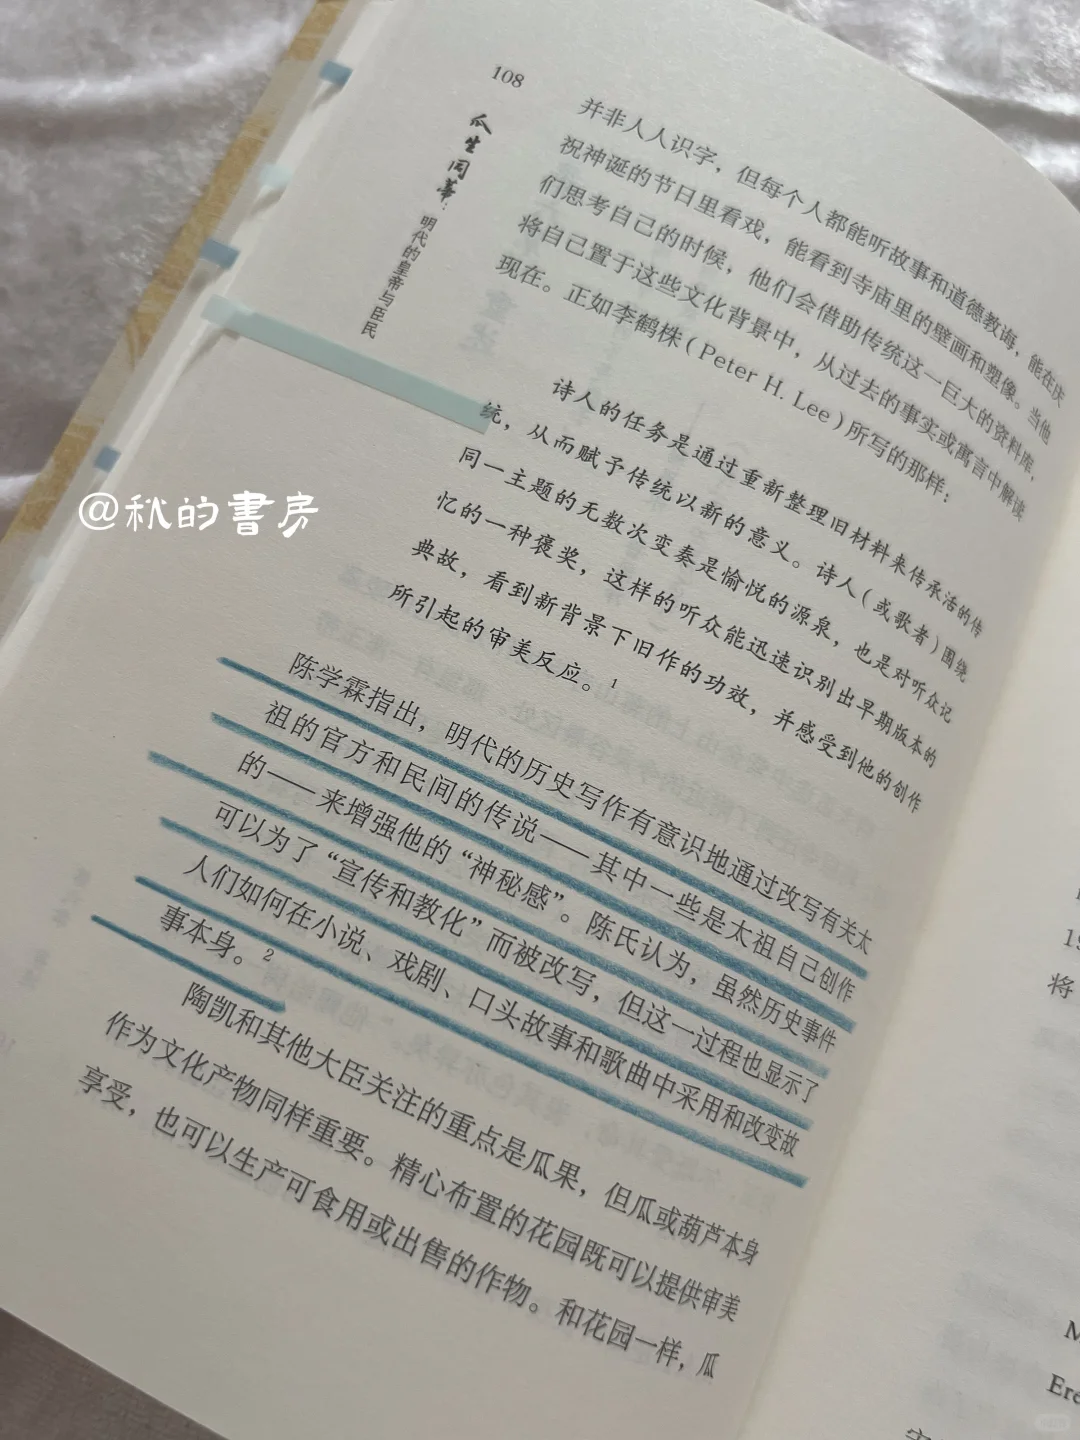 108
瓜生同蒂：明代的皇帝与臣民
并非人人识字，但每个人都能听故事和道德教诲，能在庆
祝神诞的节日里看戏，能看到寺庙里的壁画和塑像。当他
们思考自己的时候，他们会借助传统这一巨大的资料库，
将自己置于这些文化背景中，从过去的事实或寓言中解读
现在。正如李鹤株（Peter H. Lee）所写的那样：
诗人的任务是通过重新整理旧材料来传承活的传
统，从而赋予传统以新的意义。诗人（或歌者）围绕
同一主题的无数次变奏是愉悦的源泉，也是对听众记
忆的一种褒奖，这样的听众能迅速识别出早期版本的
典故，看到新背景下旧作的功效，并感受到他的创作
所引起的审美反应。1
陈学霖指出，明代的历史写作有意识地通过改写有关太
祖的官方和民间的传说——其中一些是太祖自己创作
的——来增强他的“神秘感”。陈氏认为，虽然历史事件
可以为了“宣传和教化”而被改写，但这一过程也显示了
人们如何在小说、戏剧、口头故事和歌曲中采用和改变故
事本身。2
陶凯和其他大臣关注的重点是瓜果，但瓜或葫芦本身
作为文化产物同样重要。精心布置的花园既可以提供审美
享受，也可以生产可食用或出售的作物。和花园一样，瓜
@秋的書房
将
Ere